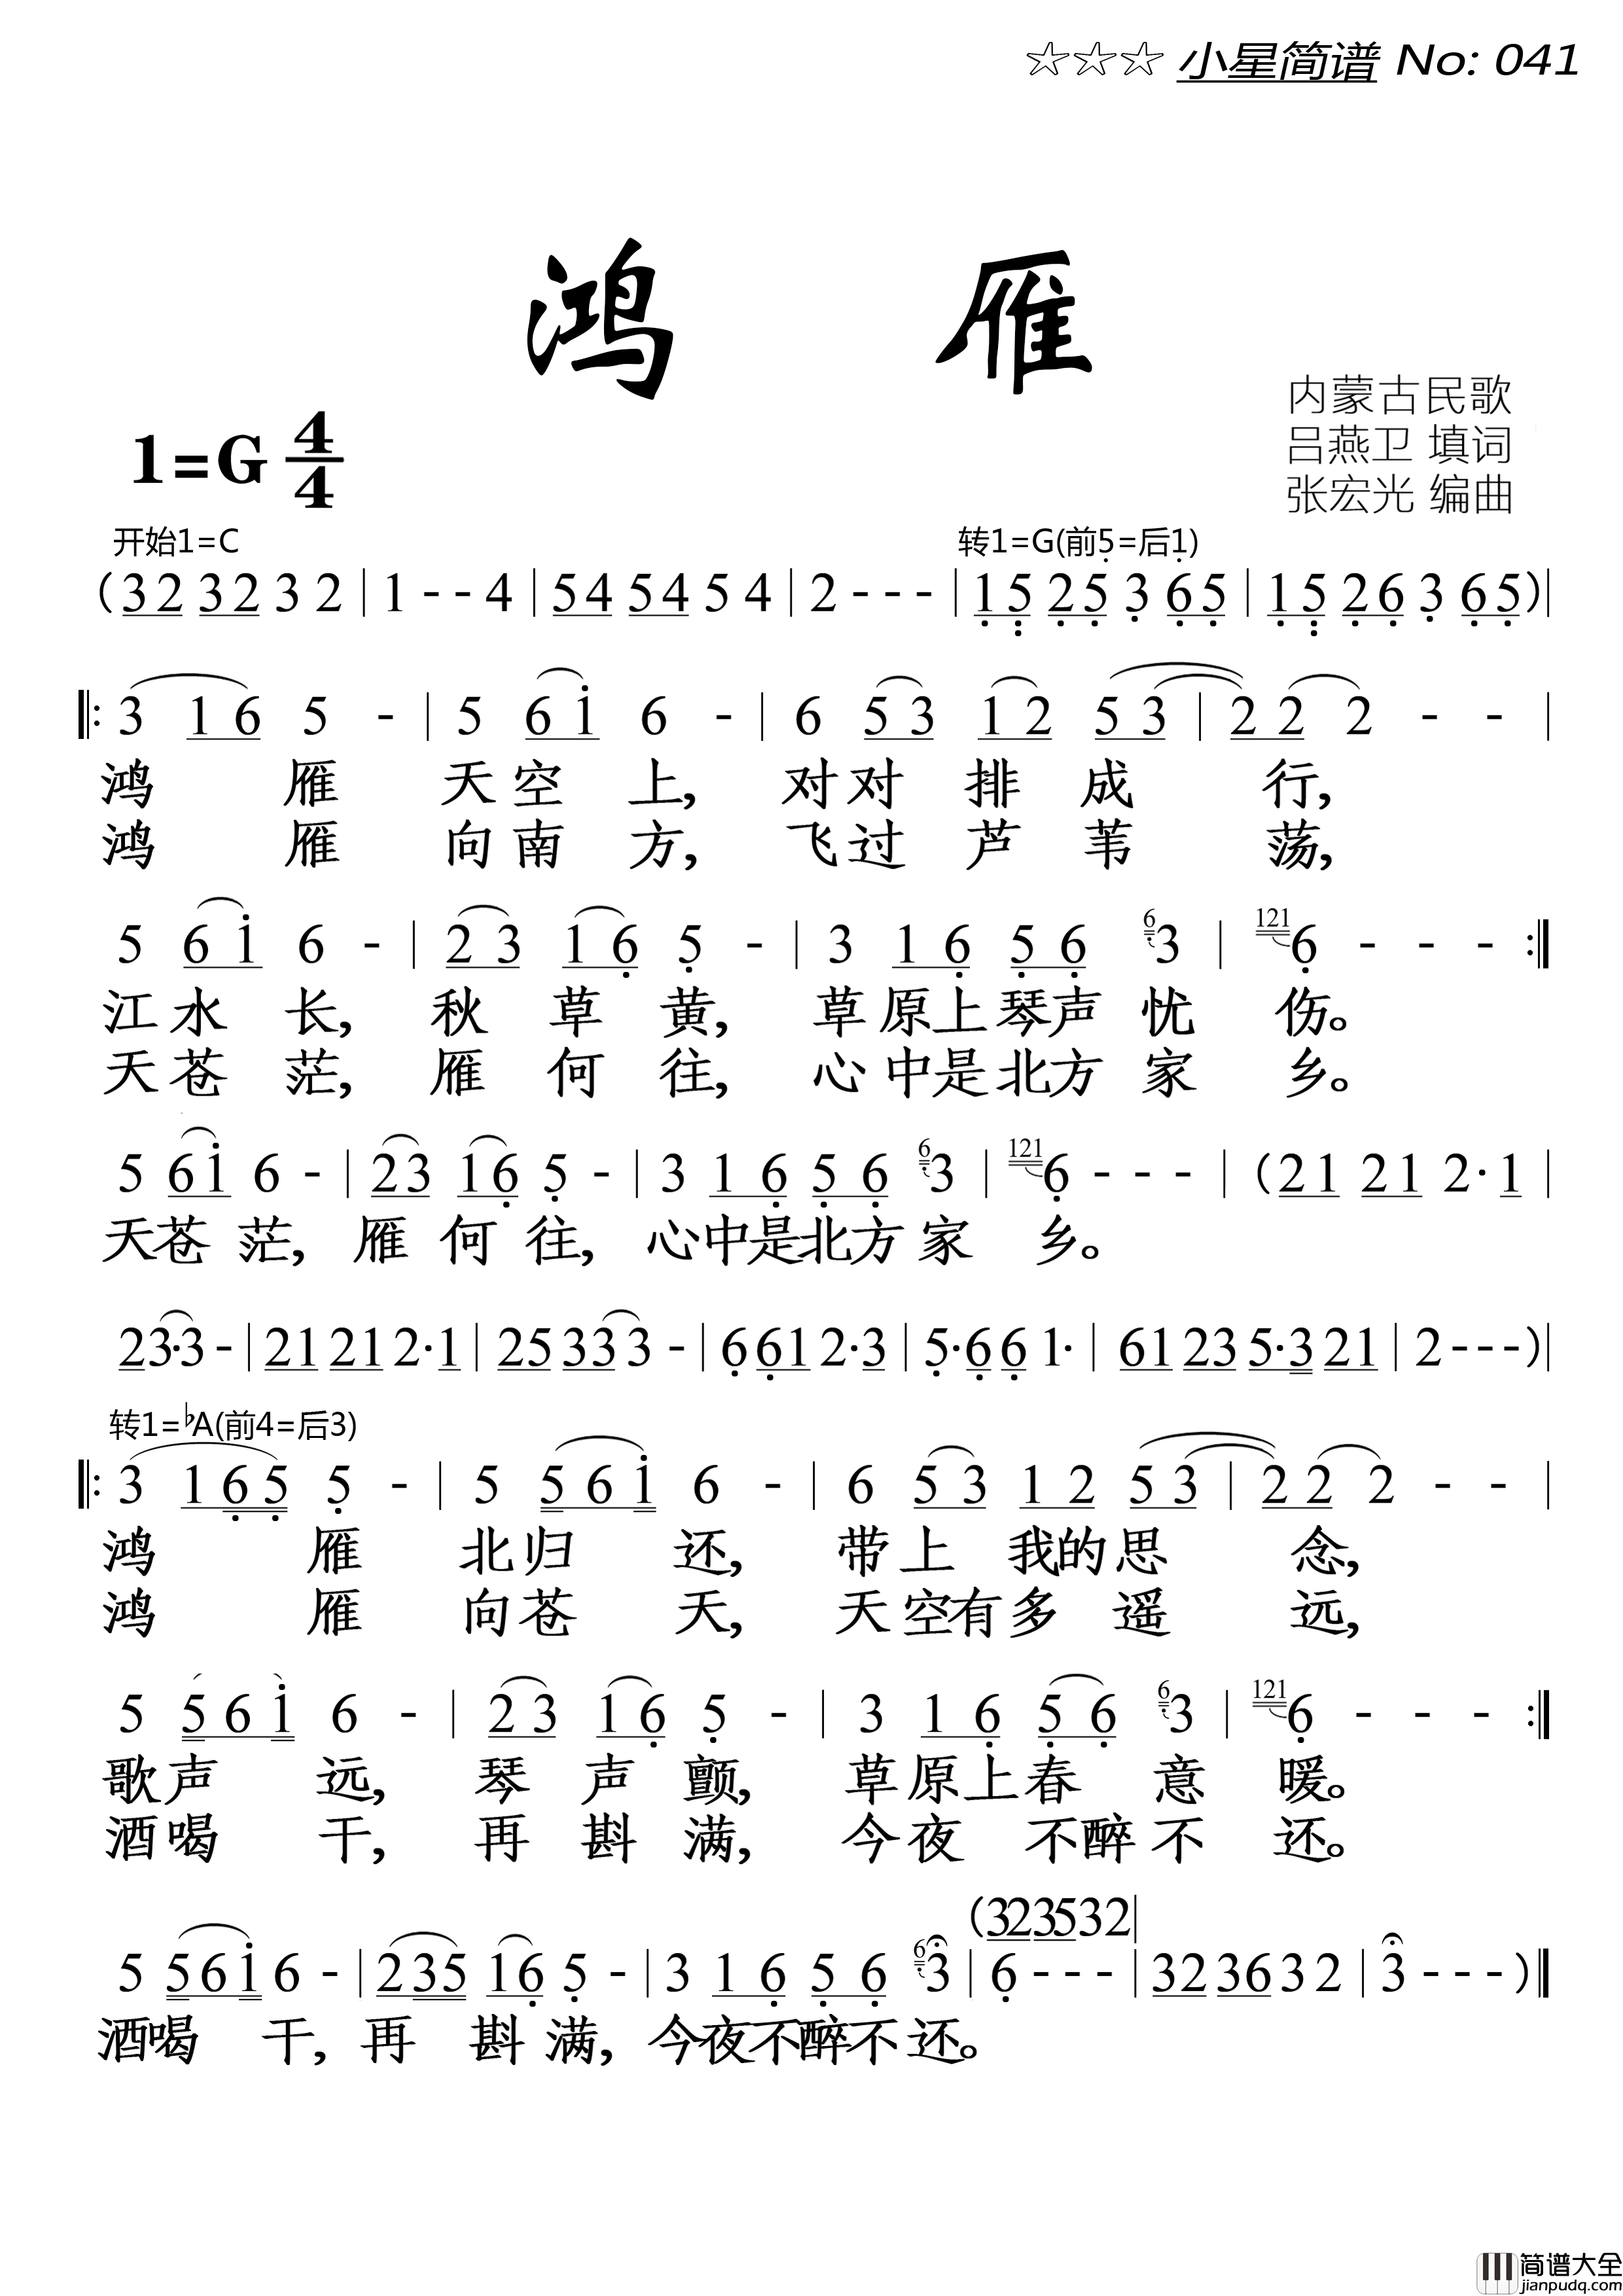 ☆☆☆ 小星简谱 No: 041
鸿 雁
内蒙古民歌
1=G 4/4
吕燕卫 填词
张宏光 编曲
开始1=C 转1=G(前5̣=后1̣)
(3 2 3 2 3 2 | 1 - - 4 | 5 4 5 4 5 4 | 2 - - - | 1 5 2 5 3 6 5 | 1 5 2 6 3 6 5 )|
‖: 3 1 6 5 - | 5 6 i 6 - | 6 5 3 1 2 5 3 | 2 2 2 - - |
鸿 雁 天 空 上, 对 对 排 成 行,
鸿 雁 向 南 方, 飞 过 芦 苇 荡,
5 6 i 6 - | 2 3 1 6 5 - | 3 1 6 5 6 6 3 | 121 6 - - - :‖
江 水 长, 秋 草 黄, 草 原 上 琴 声 忧 伤。
天 苍 茫, 雁 何 往, 心 中 是 北 方 家 乡。
5 6 i 6 - | 2 3 1 6 5 - | 3 1 6 5 6 6 3 | 121 6 - - - | (2 1 2 1 2· 1 |
天 苍 茫, 雁 何 往, 心 中 是 北 方 家 乡。
2 3· 3 - | 2 1 2 1 2· 1 | 2 5 3 3 3 - | 6 6 1 2· 3 | 5· 6 6 1· | 6 1 2 3 5· 3 2 1 | 2 - - - )|
转1=♭A(前4=后3)
‖: 3 1 6 5 5 - | 5 5 6 i 6 - | 6 5 3 1 2 5 3 | 2 2 2 - - |
鸿 雁 北 归 还, 带 上 我 的 思 念,
鸿 雁 向 苍 天, 天 空 有 多 遥 远,
5 5 6 i 6 - | 2 3 1 6 5 - | 3 1 6 5 6 6 3 | 121 6 - - - :‖
歌 声 远, 琴 声 颤, 草 原 上 春 意 暖。
酒 喝 干, 再 斟 满, 今 夜 不 醉 不 还。
(3 2 3 5 3 2 |
5 5 6 i 6 - | 2 3 5 1 6 5 - | 3 1 6 5 6 6 3 | 6 - - - | 3 2 3 6 3 2 | 3 - - - )‖
酒 喝 干, 再 斟 满, 今 夜 不 醉 不 还。
简谱大全
jianpudq.com